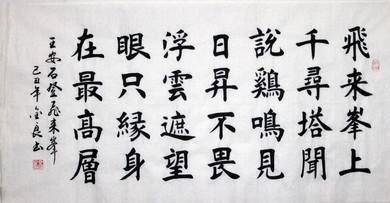 飛来峯上
千尋塔聞
說鷄鳴見
日昇不畏
浮雲遮望
眼只緣身
在最高層
王安石登飛来峯
己丑年金良书